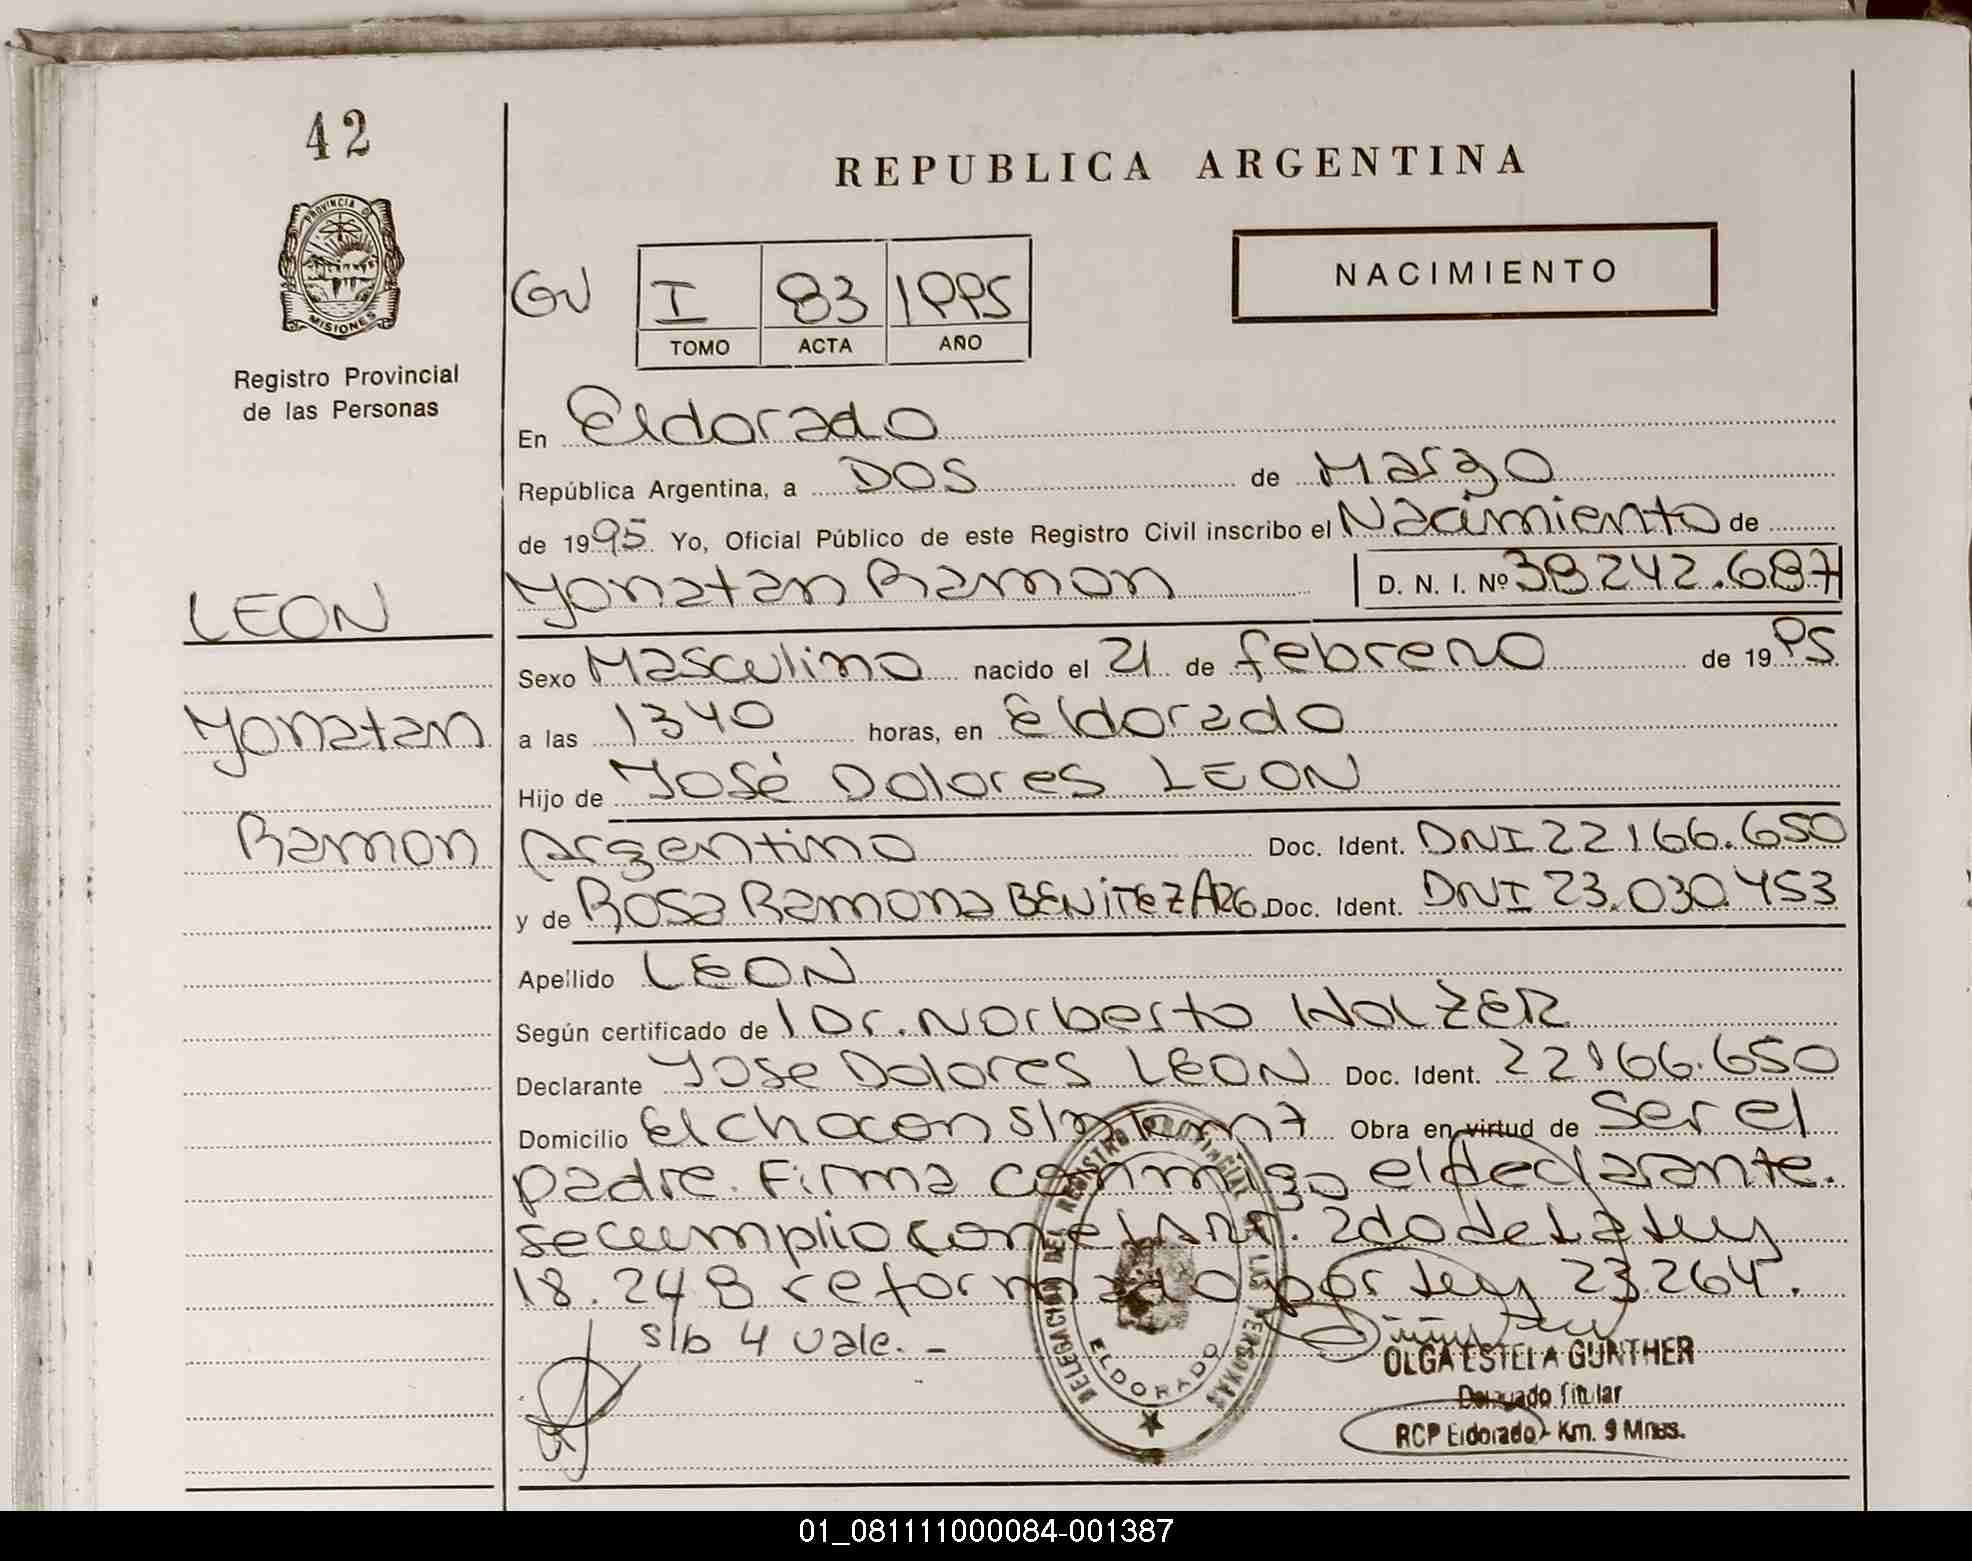 42
REPUBLICA ARGENTINA
PROVINCIA DE
MISIONES
Registro Provincial
de las Personas
NACIMIENTO
GU I 83 1995
TOMO ACTA AÑO
En Eldorado
República Argentina, a DOS de Marzo
de 1995 Yo, Oficial Público de este Registro Civil inscribo el Nacimiento de
LEON
Yonatan Ramon D. N. I. Nº 38.242.687
Sexo Masculino nacido el 21 de febrero de 1995
Yonatan
a las 1340 horas, en Eldorado
Hijo de José Dolores LEON
Ramon
Argentino Doc. Ident. DNI 22.166.650
y de Rosa Ramona BENITEZ ARG. Doc. Ident. DNI 23.030.453
Apellido LEON
Según certificado de Dr. Norberto WOLZER
Declarante Jose Dolores LEON Doc. Ident. 22166.650
Domicilio El chocon s/n km 7 Obra en virtud de ser el
padre. Firma conmigo el declarante.
se cumplio con el ART. 2do de La Ley
18.248 reformado por Ley 23.264.
s/b 4 vale. -
DELEGACION DEL REGISTRO PROVINCIAL DE LAS PERSONAS
ELDORADO
OLGA ESTELA GUNTHER
Delegado Titular
RCP Eldorado - Km. 9 Mnes.
01_081111000084-001387